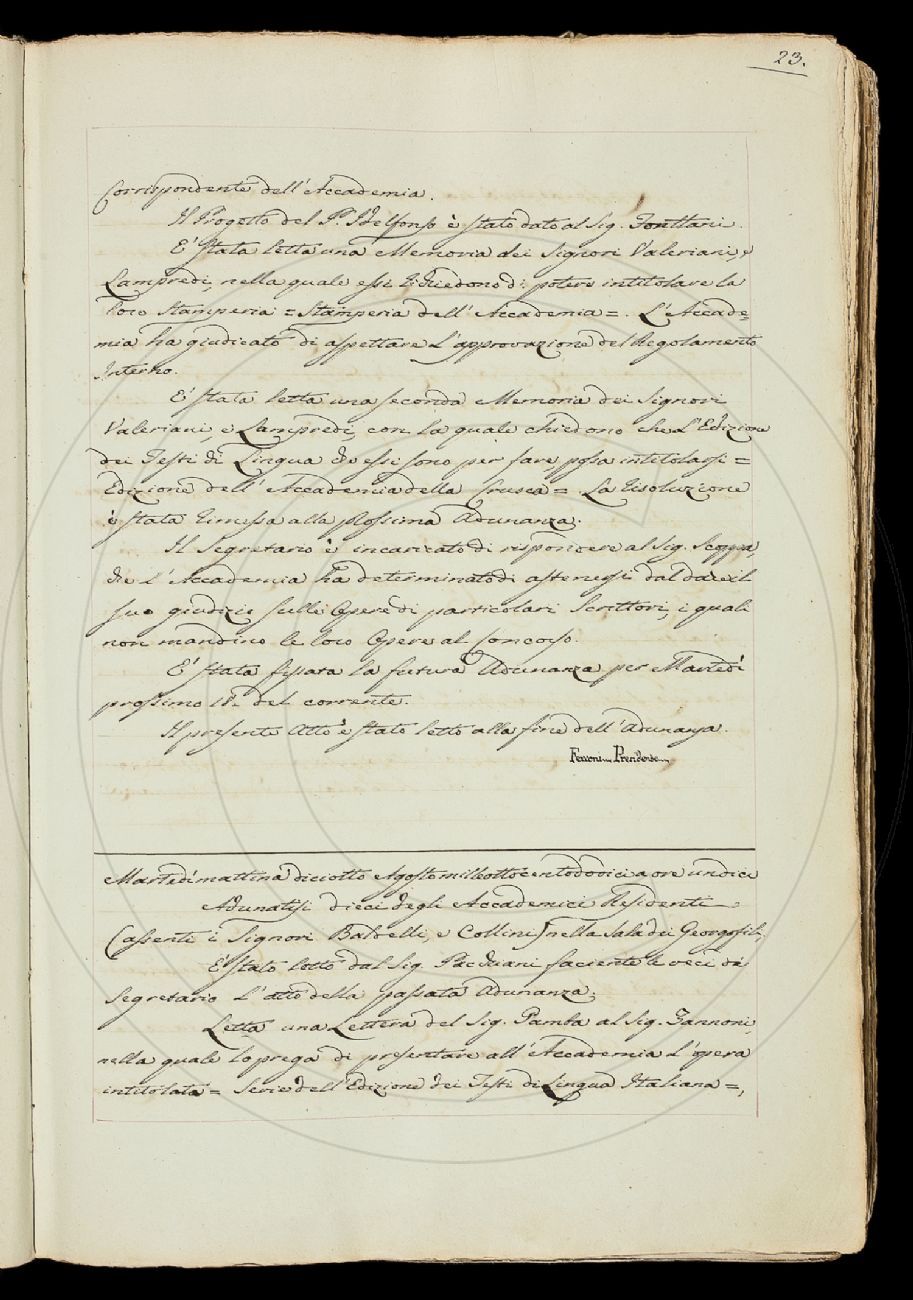 23.
Corrispondente dell'Accademia.
Il Progetto del P. Idelfonso è stato dato al Sig. Fonttani.
E' stata letta una Memoria dei Signori Valeriani, e
Lampredi, nella quale essi richiedono di potere intitolare la
loro Stamperia = Stamperia dell'Accademia =. L'Accade=
mia ha giudicato di aspettare l'approvazione del Regolamento
Interno.
E' stata letta una seconda Memoria dei Signori
Valeriani, e Lampredi, con la quale chiedono che l'Edizione
dei Testi di Lingua che essi sono per fare possa intitolarsi =
Edizione dell'Accademia della Crusca =. La risoluzione
è stata rimessa alla prossima Adunanza.
Il Segretario è incaricato di rispondere al Sig. Scoppa,
che l'Accademia ha determinato di astenersi dal dare il
suo giudizio sulle Opere di particolari Scrittori, i quali
non mandino le loro Opere al Concorso.
E' stata fissata la futura Adunanza per Martedì
prossimo 18. del corrente.
Il presente Atto è stato letto alla fine dell'Adunanza.
Ferroni Presidente
Martedì mattina diciotto Agosto milleottocentododici a ore undici
Adunatisi dieci degli Accademici Residenti
(assenti i Signori Baldelli, e Collini) nella Sala dei Georgofili,
E' stato letto dal Sig. Pacchiani faciente le veci di
Segretario l'atto della passata Adunanza.
Letta una Lettera del Sig. Pamba al Sig. Zannoni,
nella quale lo prega di presentare all'Accademia l'opera
intitolata = Serie dell'Edizione dei Testi di Lingua Italiana =,